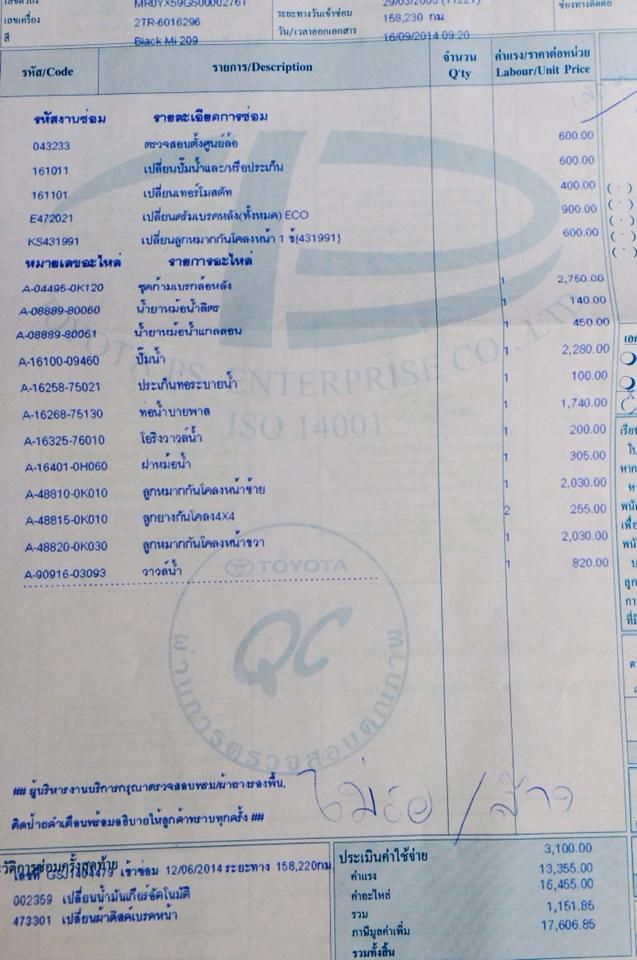 MR0YX59G500002761
เลขเครื่อง 2TR-6016296 ระยะทางวันเข้าซ่อม 158,230 กม.
สี Black Mi 209 วัน/เวลาออกเอกสาร 16/09/2014 09:20
รหัส/Code รายการ/Description จำนวน Q'ty ค่าแรง/ราคาต่อหน่วย Labour/Unit Price
รหัสงานซ่อม รายละเอียดการซ่อม
043233 ตรวจสอบตั้งศูนย์ล้อ 600.00
161011 เปลี่ยนปั๊มน้ำและ/หรือประเก็น 600.00
161101 เปลี่ยนเทอร์โมสตัท 400.00
E472021 เปลี่ยนดรัมเบรคหลัง(ทั้งหมด) ECO 900.00
KS431991 เปลี่ยนลูกหมากกันโคลงหน้า 1 ข้(431991) 600.00
หมายเลขอะไหล่ รายการอะไหล่
A-04495-0K120 ชุดก้ามเบรกล้อหลัง 1 2,750.00
A-08889-80060 น้ำยาหม้อน้ำลิตร 1 140.00
A-08889-80061 น้ำยาหม้อน้ำแกลลอน 1 450.00
A-16100-09460 ปั๊มน้ำ 1 2,280.00
A-16258-75021 ประเก็นทอระบายน้ำ 1 100.00
A-16268-75130 ท่อน้ำบายพาส 1 1,740.00
A-16325-76010 โอริงวาวล์น้ำ 1 200.00
A-16401-0H060 ฝาหม้อน้ำ 1 305.00
A-48810-0K010 ลูกหมากกันโคลงหน้าซ้าย 1 2,030.00
A-48815-0K010 ลูกยางกันโคลง4X4 2 255.00
A-48820-0K030 ลูกหมากกันโคลงหน้าขวา 1 2,030.00
A-90916-03093 วาวล์น้ำ 1 820.00
TOYOTA PS. ENTERPRISE CO., LTD
ISO 14001
TOYOTA
QC
ผ่านการตรวจสอบคุณภาพ
## ผู้บริหารงานบริการกรุณาตรวจสอบพรม/ผ้ายางรองพื้น,
ติดป้ายคำเตือนพร้อมอธิบายให้ลูกค้าทราบทุกครั้ง ##
ไม่รอ / ล้าง
วัติการซ่อมครั้งสุดท้าย
เลขที่ เข้าซ่อม 12/06/2014 ระยะทาง 158,220กม
002359 เปลี่ยนน้ำมันเกียร์อัตโนมัติ
473301 เปลี่ยนผ้าดิสค์เบรคหน้า
ประเมินค่าใช้จ่าย
ค่าแรง 3,100.00
ค่าอะไหล่ 13,355.00
รวม 16,455.00
ภาษีมูลค่าเพิ่ม 1,151.85
รวมทั้งสิ้น 17,606.85